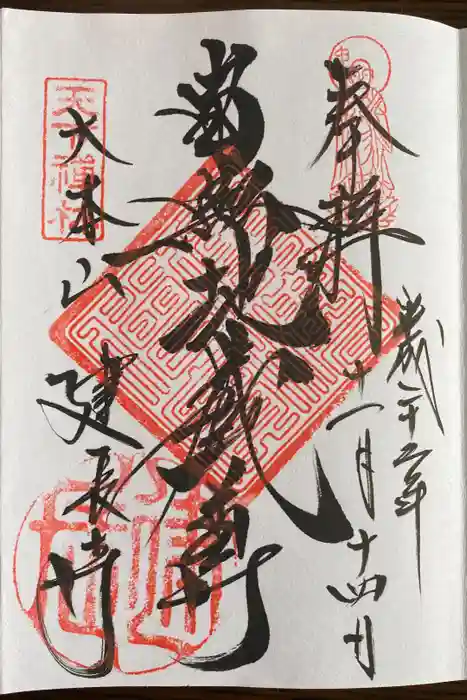 奉拝
平成二十五年
十一月十四日
南無地蔵尊
天下禅林
大本山
建長寺